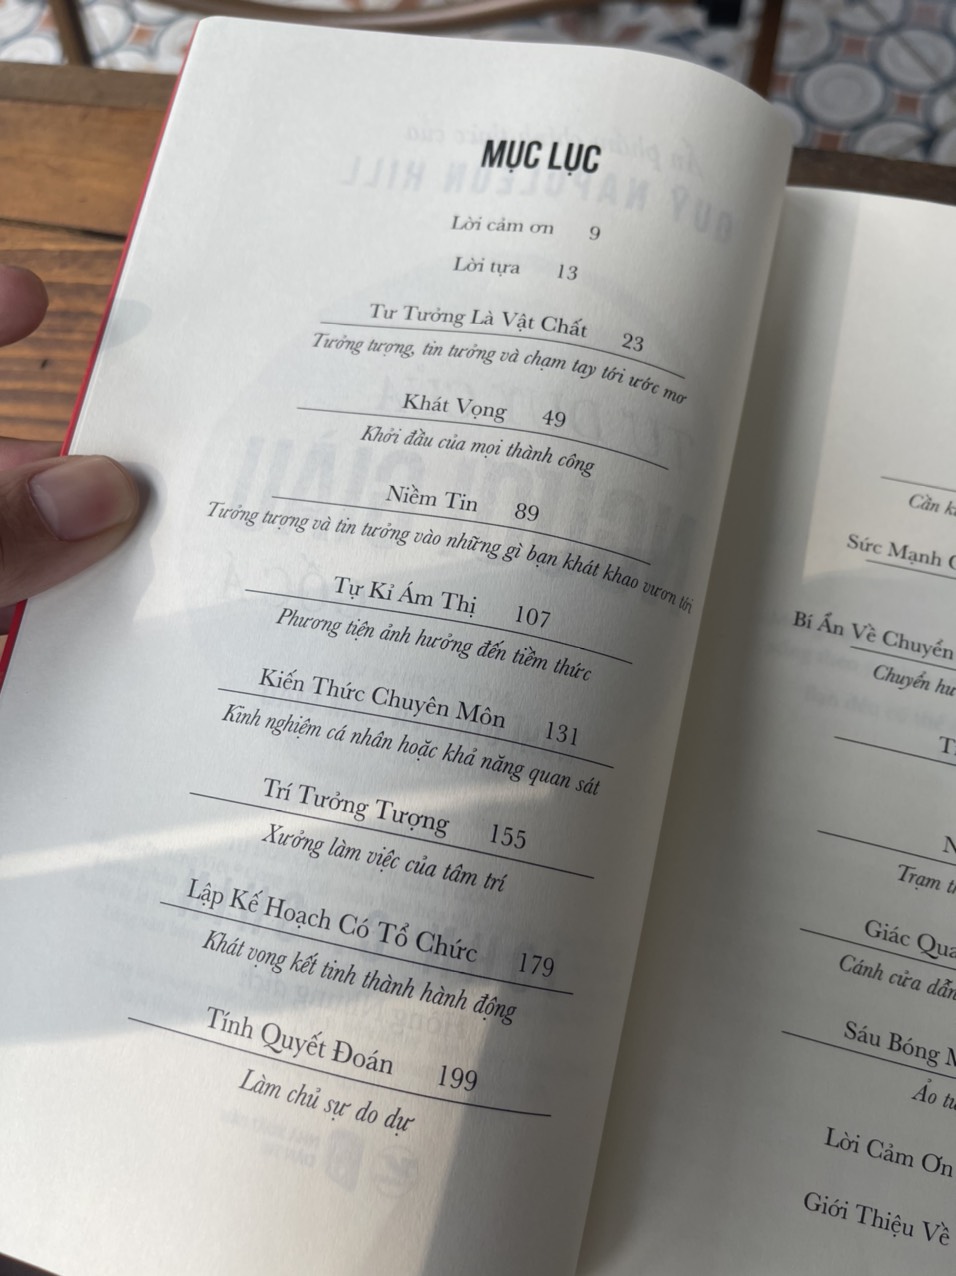 MỤC LỤC
Lời cảm ơn 9
Lời tựa 13
Tư Tưởng Là Vật Chất 23
Tưởng tượng, tin tưởng và chạm tay tới ước mơ
Khát Vọng 49
Khởi đầu của mọi thành công
Niềm Tin 89
Tưởng tượng và tin tưởng vào những gì bạn khát khao vươn tới
Tự Kỉ Ám Thị 107
Phương tiện ảnh hưởng đến tiềm thức
Kiến Thức Chuyên Môn 131
Kinh nghiệm cá nhân hoặc khả năng quan sát
Trí Tưởng Tượng 155
Xưởng làm việc của tâm trí
Lập Kế Hoạch Có Tổ Chức 179
Khát vọng kết tinh thành hành động
Tính Quyết Đoán 199
Làm chủ sự do dự
Cần
Sức Mạnh
Bí Ẩn Về Chuyển
Chuyển
Trạm
Giác
Cánh cửa dẫn
Sáu Bóng
Ảo
Lời Cảm Ơn
Giới Thiệu Về